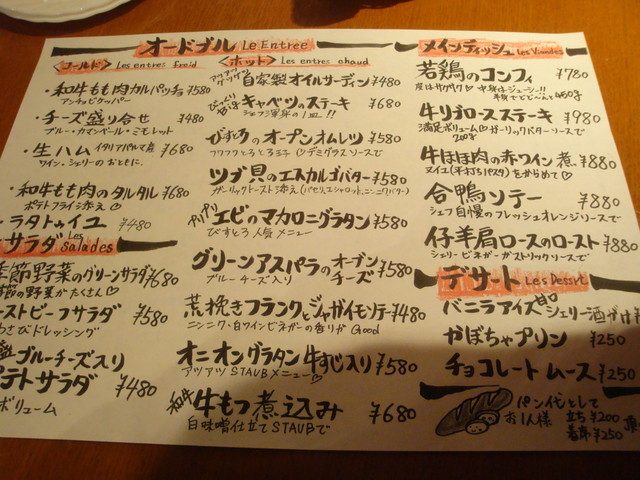 オードブル Le Entree
<コールド> Les entres froid
・和牛もも肉カルパッチョ ¥580
アンチョビケッパー
・チーズ盛り合せ ¥480
ブルー・カマンベール・ミモレット
・生ハム イタリアパルマ産 ¥680
ワイン・シェリーのおともに.
・和牛もも肉のタルタル ¥680
ポテトフライ添え♡
・ラタトゥイユ ¥480
サラダ Les Salades
季節野菜のグリーンサラダ ¥680
節の野菜がたくさん♡
ーストビーフサラダ ¥580
わさびドレッシング
ブルーチーズ入り
テトサラダ ¥480
ボリューム
<ホット> Les entres chaud
アツアツ
自家製オイルサーディン ¥480
びっくり
キャベツのステーキ ¥680
シェフ渾身の1皿!!
びすとろのオープンオムレツ ¥580
フワフワとろとろ玉子♡デミグラスソースで
ツブ貝のエスカルゴバター ¥580
ガーリックトースト添え(パセリ,エシャロット,ニンニクバター)
プリプリ
エビのマカロニグラタン ¥580
びすとろ人気メニュー
グリーンアスパラのオーブンチーズ ¥580
ブルーチーズ入り
荒挽きフランクとジャガイモソテー ¥480
ニンニク・白ワインビネガーの香りが Good
オニオングラタン 牛すじ入り ¥580
アツアツ STAUBメニュー♡
和牛
牛もつ煮込み ¥680
白味噌仕立て STAUBで
メインディッシュ Les Viandes
若鶏のコンフィ ¥780
皮はサクサク♡中身はジューシー!!
半身でどど〜んと 450g
牛リブロースステーキ ¥980
満足ボリューム♡ガーリックバターソースで
200g
牛ほほ肉の赤ワイン煮 ¥880
ヌイユ(平打ちパスタ)をからめて♡
合鴨ソテー ¥880
シェフ自慢のフレッシュオレンジソースで
仔羊肩ロースのロースト ¥880
シェリービネガーガストリックソースで
デザート Les Dessrt
バニラアイス シェリー酒がけ
かぼちゃプリン ¥250
チョコレートムース ¥250
パン代として
お1人様 立ち ¥200
着席 ¥250